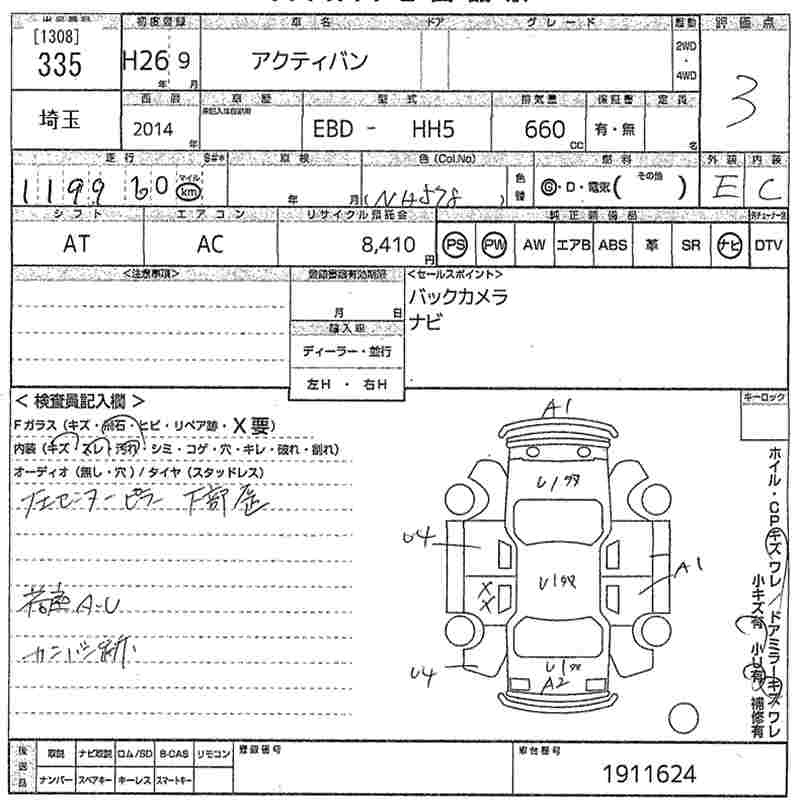 初度登録 車名 ドア グレード 駆動 評価点
[1308]
335
H26 9
年 月
アクティバン
2WD
・
4WD
3
埼玉
西暦 車歴 型式 排気量 保証書 定員
2014 年
EBD - HH5
660 cc
有・無
名
走行 車検 色(Col.No) 燃料 外装 内装
119960
マイル
km
年 月
(NH578)
色替
G・D・電気( その他 )
E C
シフト エアコン リサイクル預託金 純正装備品
AT AC 8,410 円
PS PW AW エアB ABS 革 SR ナビ DTV
<注意事項>
登録書換有効期限
月 日
輸入車
ディーラー・並行
左H ・ 右H
<セールスポイント>
バックカメラ
ナビ
< 検査員記入欄 >
Fガラス(キズ・飛石・ヒビ・リペア跡・X要)
内装(キズ・スレ・汚れ・シミ・コゲ・穴・キレ・破れ・割れ)
オーディオ(無し・穴)/タイヤ(スタッドレス)
左センターピラー下部凹
荷室A-U
カンバン跡
キーロック
A1
U1
U4
U1
A1
X
X
U4
U1
A2
ホイル・CPキズ ワレ/ドアミラーキズ ワレ
小キズ有 小U有 補修有
後送品
取説 ナビ取説 ロム/SD B-CAS リモコン
ナンバー スペアキー キーレス スマートキー
登録番号
車台番号
1911624